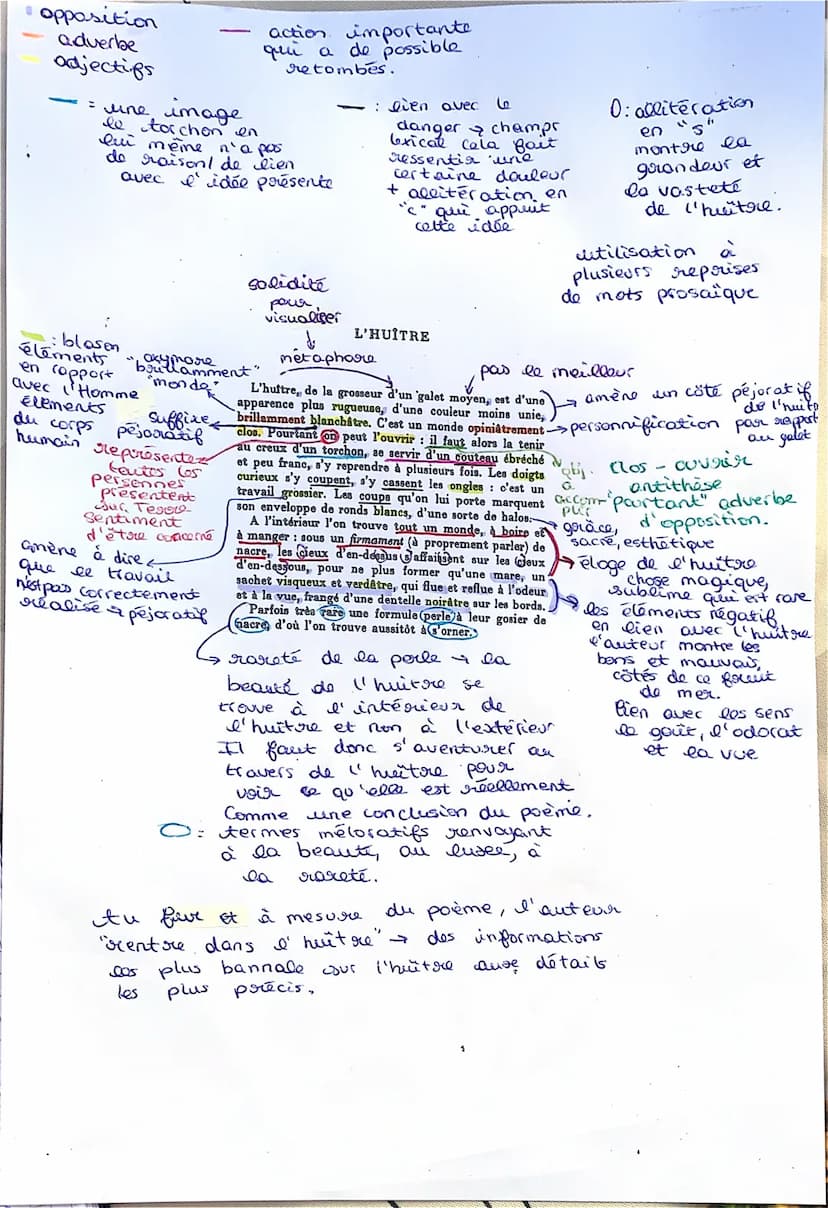 opposition
adverbe
adjectifs
action importante
qui a de possible
retombés.
= une image
le torchon en
lui même n'a pas
de raison/ de lien
avec l'idée présente
: lien avec le
danger → champs
lexical cela fait
ressentir une
certaine douleur
+ allitération en
"c" qui appuit
cette idée
O: allitération
en "s"
montre la
grandeur et
la vasteté
de l'huître.
utilisation à
plusieurs reprises
de mots prosaïque
solidité
pour
visualiser
↓
métaphore
L'HUÎTRE
pas le meilleur
: blason
éléments
en rapport
avec l'Homme
éléments
du corps
humain
oxymore
"brillamment"
"monde"
suffixe
péjoratif
représente
toutes les
personnes
présentent
sur Terre
sentiment
d'être concerné
amène à dire
que le travail
n'est pas correctement
réalisé → péjoratif
L'huître, de la grosseur d'un galet moyen, est d'une
apparence plus rugueuse, d'une couleur moins unie,
brillamment blanchâtre. C'est un monde opiniâtrement
clos. Pourtant on peut l'ouvrir : il faut alors la tenir
au creux d'un torchon, se servir d'un couteau ébréché
et peu franc, s'y reprendre à plusieurs fois. Les doigts
curieux s'y coupent, s'y cassent les ongles : c'est un
travail grossier. Les coups qu'on lui porte marquent
son enveloppe de ronds blancs, d'une sorte de halos.
A l'intérieur l'on trouve tout un monde, à boire et
à manger : sous un firmament (à proprement parler) de
nacre, les cieux d'en-dessus s'affaissent sur les cieux
d'en-dessous, pour ne plus former qu'une mare, un
sachet visqueux et verdâtre, qui flue et reflue à l'odeur
et à la vue, frangé d'une dentelle noirâtre sur les bords.
Parfois très rare une formule perle à leur gosier de
nacre, d'où l'on trouve aussitôt à s'orner.
→ amène un côté péjoratif
de l'huitr
par rapport
au galet
→ personnification
obj.
à
accom-
plir
clos - ouvrir
antithèse
"pourtant" adverbe
d'opposition.
grâce,
sacré, esthétique
éloge de l'huître
chose magique,
sublime qui est rare
les éléments négatif
en lien avec l'huître
l'auteur montre les
bons et mauvais
côtés de ce fruit
de mer.
lien avec les sens
le goût, l'odorat
et la vue
→ rareté de la perle → la
beauté de l'huître se
trouve à l'intérieur de
l'huître et non à l'extérieur
Il faut donc s'aventurer au
travers de l'huître pour
voir ce qu'elle est réellement
Comme une conclusion du poème.
= termes mélioratifs renvoyant
à la beauté, au luxe, à
la rareté.
Au fur et à mesure du poème, l'auteur
"rentre dans l'huître" → des informations
les plus bannale sur l'huître aux détails
les plus précis.